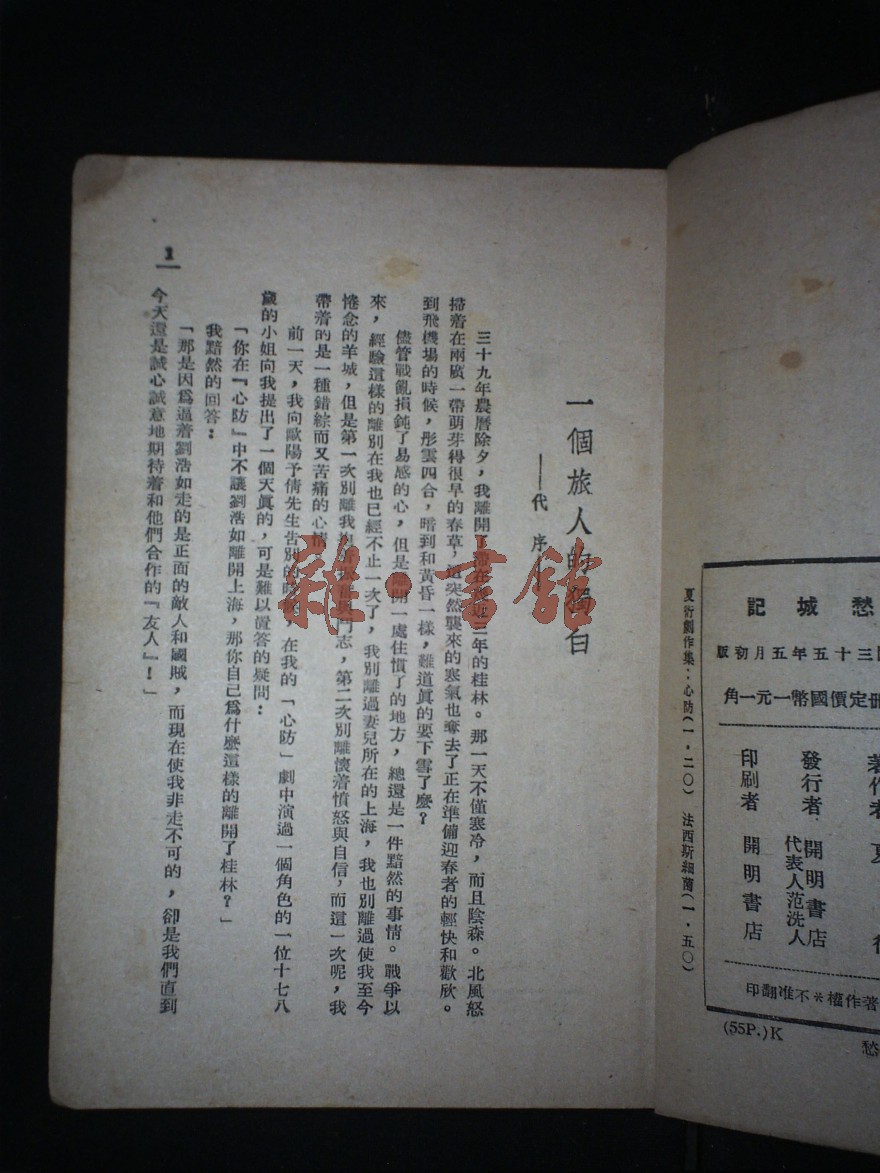 愁城記
三十五年五月初版
冊定價國幣一元一角
著作者 夏 衍
發行者 開明書店
代表人范洗人
印刷者 開明書店
著作權※不准翻印
(55P.)K
愁
夏衍劇作集：心防(一.二〇) 法西斯細菌(一.五〇)
一個旅人的獨白
——代序——
三十九年農曆除夕，我離開了滯在將近三年的桂林。那一天不僅寒冷，而且陰森。北風怒
掃着在兩廣一帶萌芽得很早的春草，這突然襲來的寒氣也奪去了正在準備迎春者的輕快和歡欣。
到飛機場的時候，彤雲四合，暗到和黃昏一樣，難道眞的要下雪了麽？
儘管戰亂損鈍了易感的心，但是離開一處住慣了的地方，總還是一件黯然的事情。戰爭以
來，經驗這樣的離別在我也已經不止一次了，我別離過妻兒所在的上海，我也別離過使我至今
惓念的羊城，但是第一次別離我抱着興奮與鬥志，第二次別離懷着憤怒與自信，而這一次呢，我
帶着的是一種錯綜而又苦痛的心情。
前一天，我向歐陽予倩先生告別的時候，在我的「心防」劇中演過一個角色的一位十七八
歲的小姐向我提出了一個天眞的，可是難以置答的疑問：
「你在『心防』中不讓劉浩如離開上海，那你自己爲什麽這樣的離開了桂林？」
我黯然的回答：
「那是因爲逼着劉浩如走的是正面的敵人和國賊，而現在使我非走不可的，卻是我們直到
今天還是誠心誠意地期待着和他們合作的『友人』！」
1
雜·書館